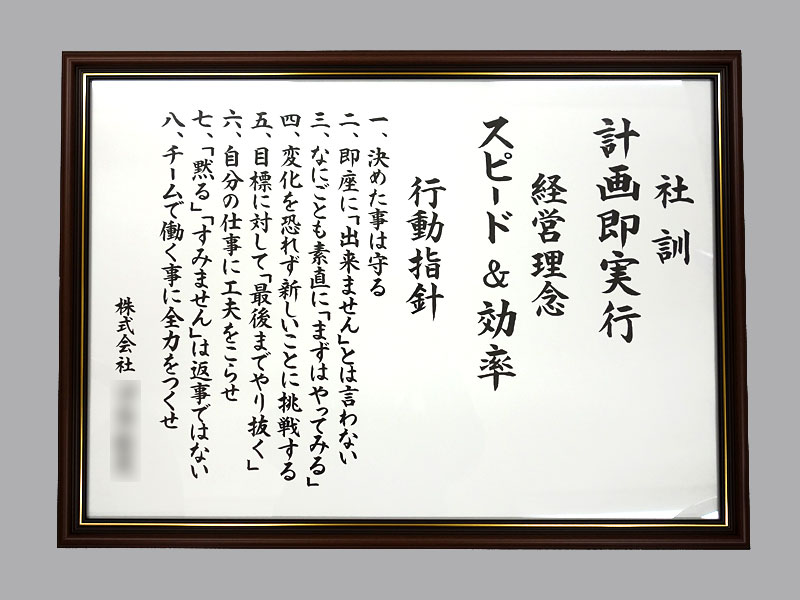 社訓
計画即実行
経営理念
スピード&効率
行動指針
一、決めた事は守る
二、即座に「出来ません」とは言わない
三、なにごとも素直に「まずはやってみる」
四、変化を恐れず新しいことに挑戦する
五、目標に対して「最後までやり抜く」
六、自分の仕事に工夫をこらせ
七、「黙る」「すみません」は返事ではない
八、チームで働く事に全力をつくせ
株式会社